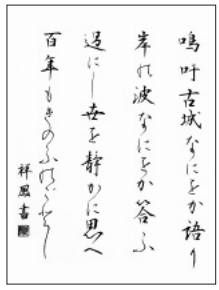 嗚呼古城なにをか語り
岸の波なにをか答ふ
過にし世を静かに思へ
百年もきのふのごとし
祥風書